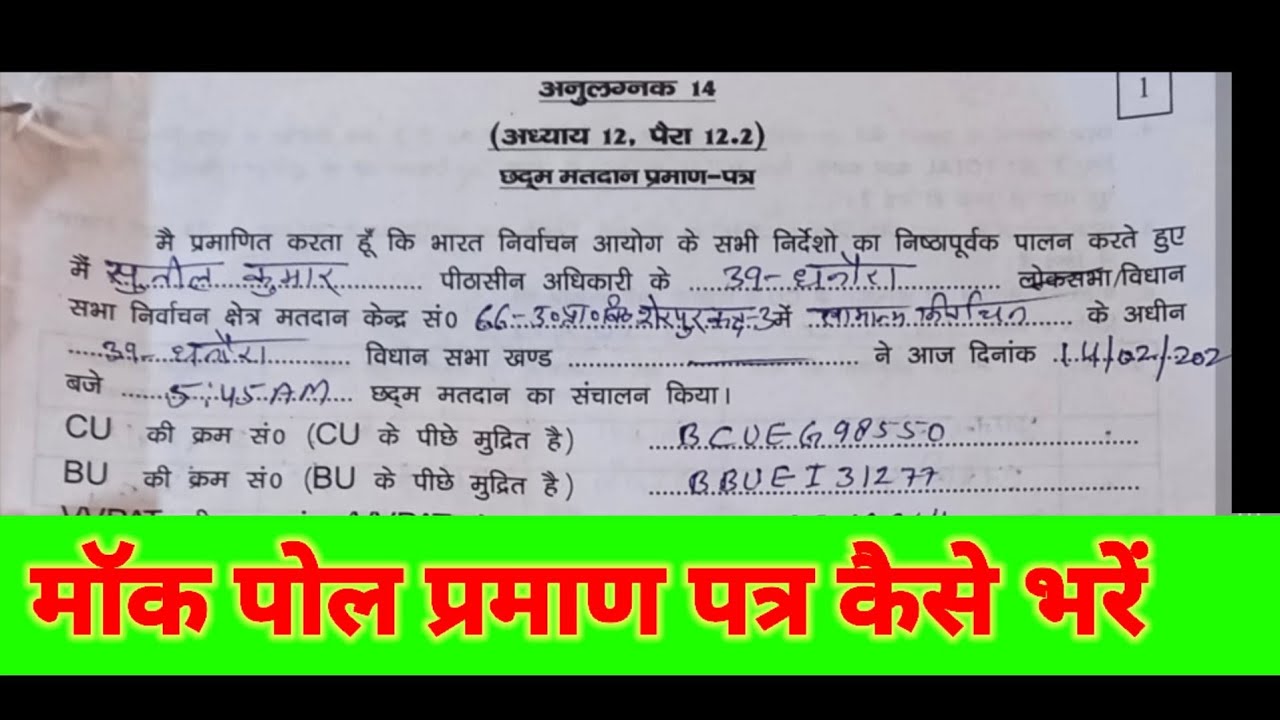 अनुलग्नक 14
1
(अध्याय 12, पैरा 12.2)
छद्म मतदान प्रमाण-पत्र
मै प्रमाणित करता हूँ कि भारत निर्वाचन आयोग के सभी निर्देशो का निष्ठापूर्वक पालन करते हुए
मैं सुनील कुमार पीठासीन अधिकारी के 39-धनौरा लोकसभा/विधान
सभा निर्वाचन क्षेत्र मतदान केन्द्र सं० 66-उ०प्रा०वि० शेरपुर में सामान्य निर्वाचन के अधीन
39-धनौरा विधान सभा खण्ड ने आज दिनांक 14/02/202
बजे 5:45 AM छद्म मतदान का संचालन किया।
CU की क्रम सं० (CU के पीछे मुद्रित है) BCUEG98550
BU की क्रम सं० (BU के पीछे मुद्रित है) BBUEI31277
मॉक पोल प्रमाण पत्र कैसे भरें